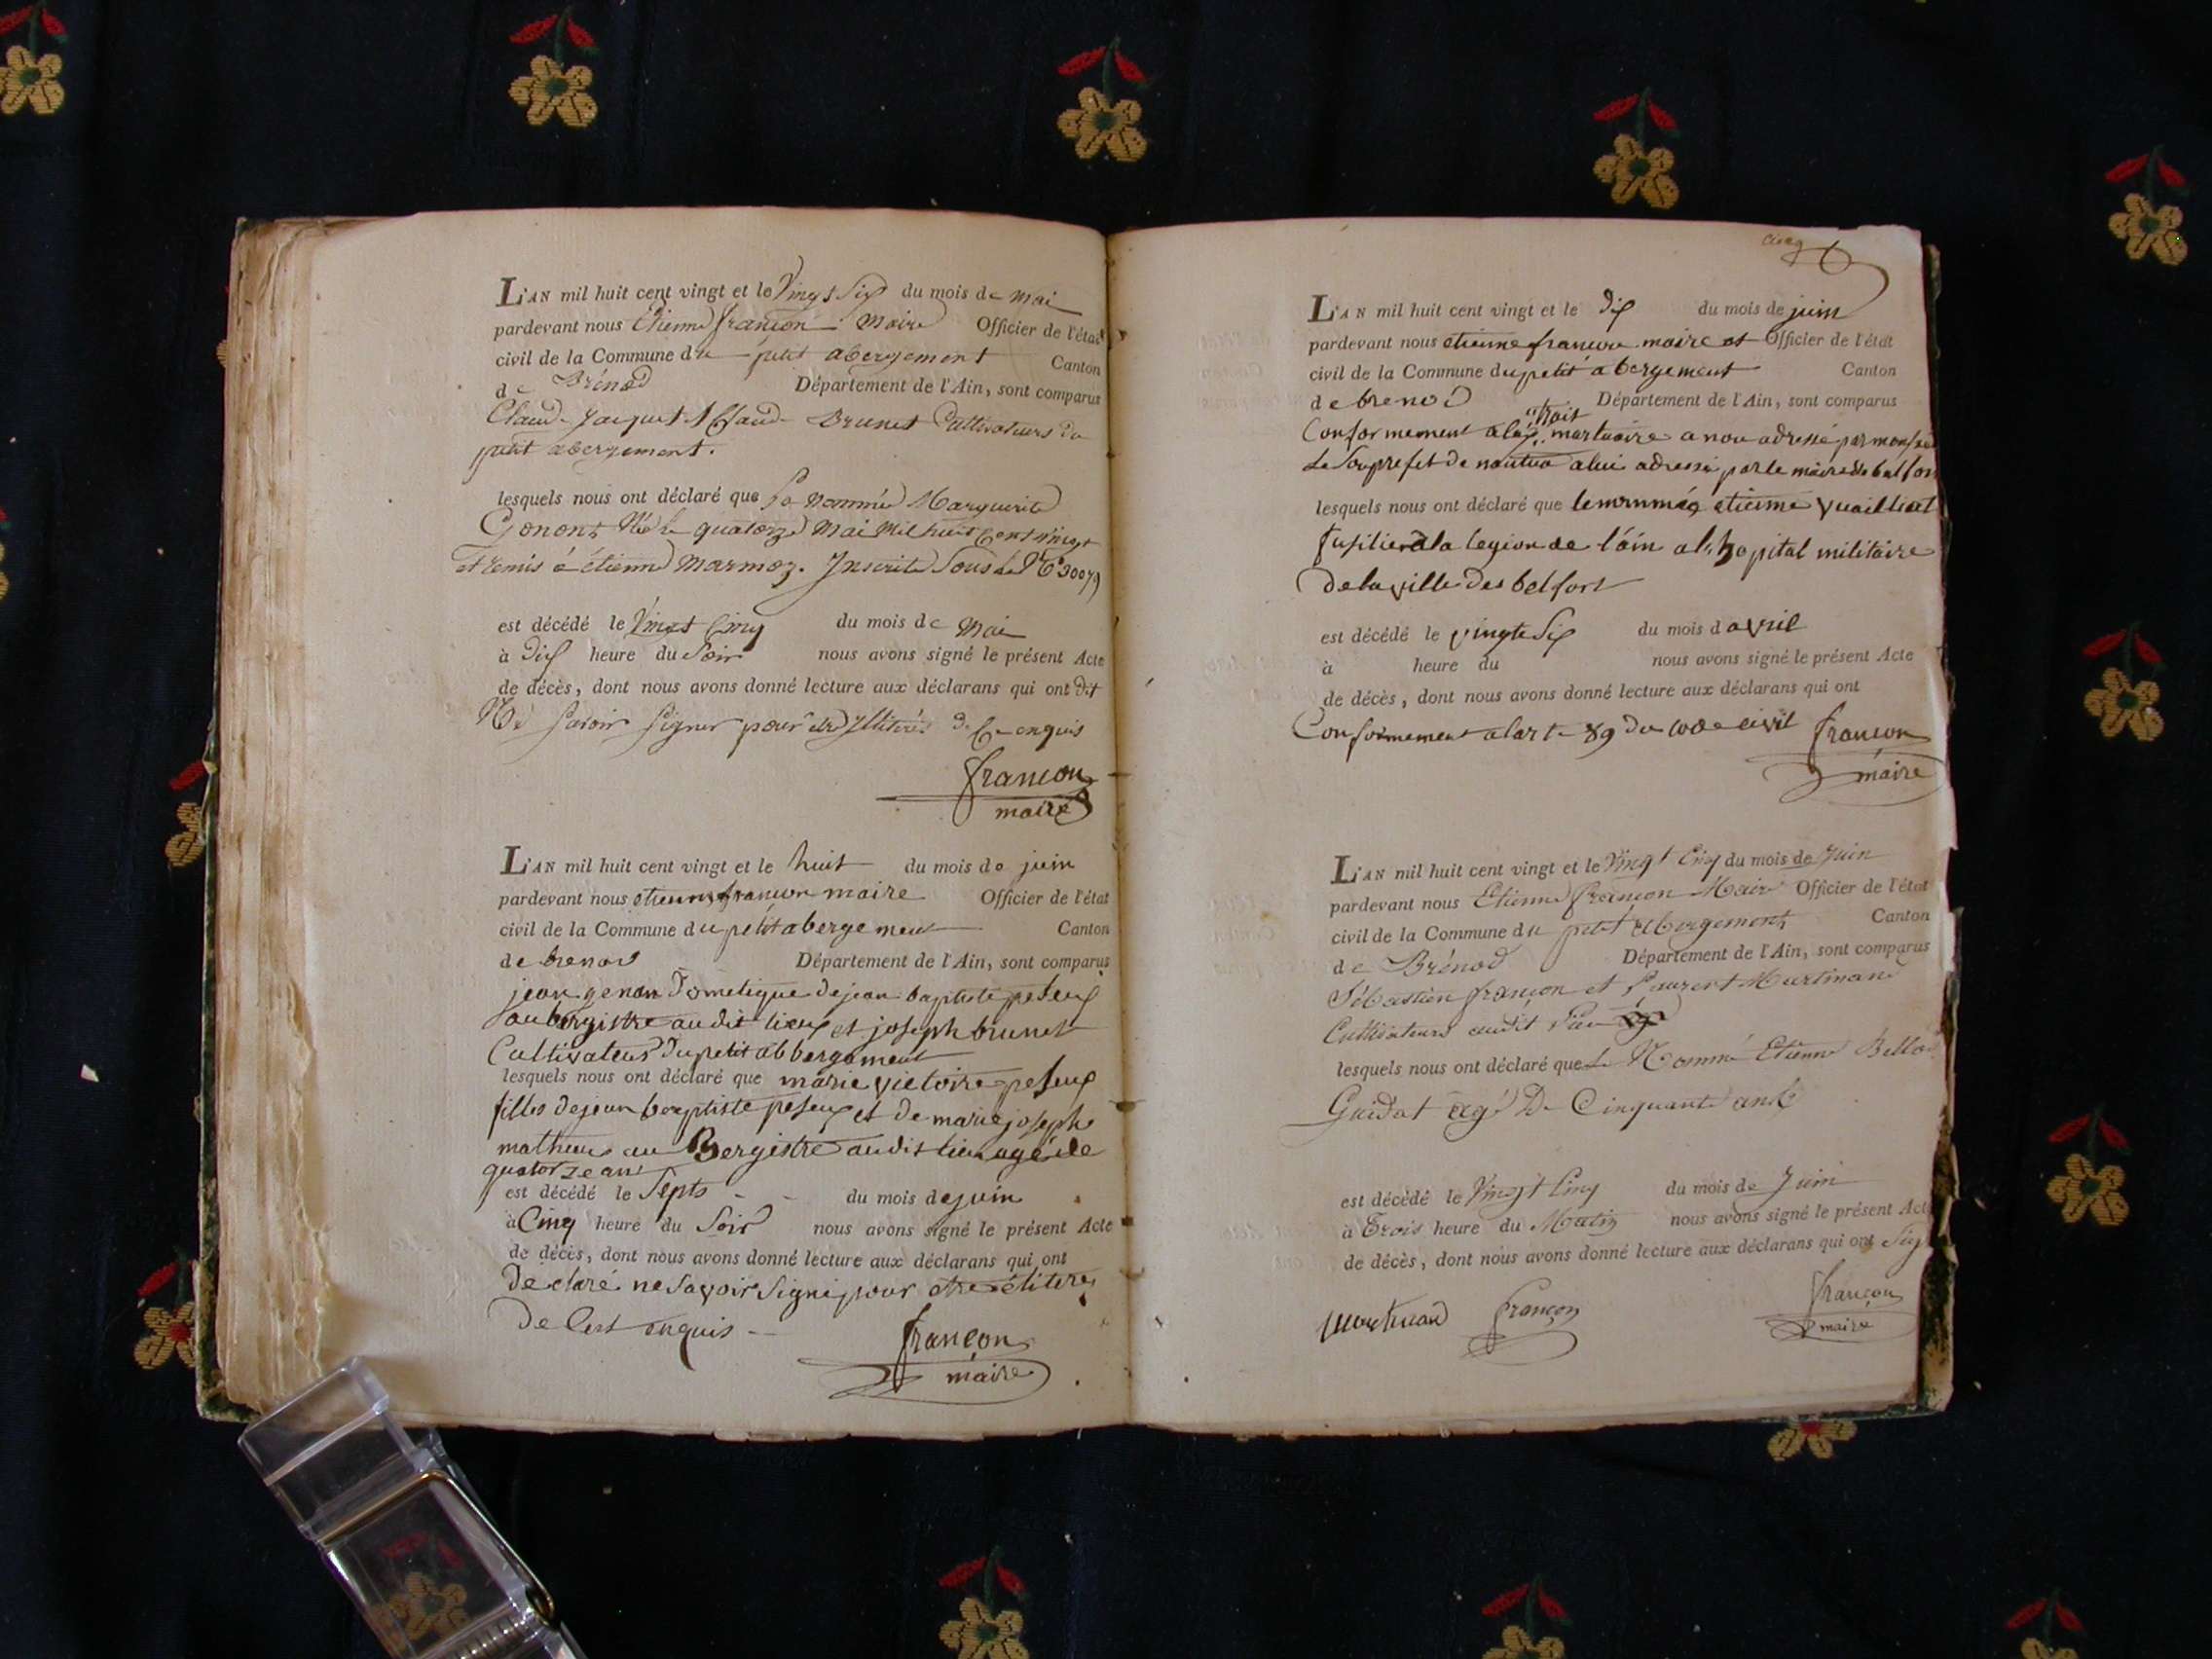 L'AN mil huit cent vingt et le Vingt Six du mois de mai
pardevant nous Etienne françon Maire Officier de l'état
civil de la Commune du petit abergement Canton
de Brénod Département de l'Ain, sont comparus
Claude Jacquet & Claude Brunet Cultivateurs du
petit abergement.
lesquels nous ont déclaré que la nommée Marguerite
Gonont Née le quatorze Mai Mil huit Cent vingt
et remis à étienne Marmoz. Inscrite Sous le N°
est décédé le Vingt Cinq du mois de Mai
à Dix heure du Soir nous avons signé le présent Acte
de décès, dont nous avons donné lecture aux déclarans qui ont dit
Ne Savoir Signer pour être Illiterés de Ce enquis
françon
maire
L'AN mil huit cent vingt et le huit du mois de juin
pardevant nous etienne françon maire Officier de l'état
civil de la Commune du petit abergement Canton
de brenod Département de l'Ain, sont comparus
jean genon dometique de jean baptiste peseux
aubergistre audit lieux et joseph brunet
Cultivateus du petit abbergement
lesquels nous ont déclaré que marie victoire peseux
filles de jean baptiste peseux et de marie josephe
mathieu au Bergistre audit lieu agé de
quatorze ans
est décédé le Septs du mois de juin
à Cinq heure du Soir nous avons signé le présent Acte
de décès, dont nous avons donné lecture aux déclarans qui ont
Declaré ne Savoir Signé pour etre élitere
De Cest enquis
françon
maire
cinq
L'AN mil huit cent vingt et le dix du mois de juin
pardevant nous etienne françon maire et Officier de l'état
civil de la Commune du petit abergement Canton
de brenod Département de l'Ain, sont comparus
trait
Conformement a lex mortuaire a nou adressé par
Le Souprefet de nantua a lui adressé par le maire de
lesquels nous ont déclaré que le nommé etienne
fusilier a la legion de l'ain a l'hopital militaire
de la ville des belfort
est décédé le vingte Six du mois d avril
à heure du nous avons signé le présent Acte
de décès, dont nous avons donné lecture aux déclarans qui ont
Conformement a lart 89 du code civil françon
maire
L'AN mil huit cent vingt et le Vingt Cinq du mois de Juin
pardevant nous Etienne françon Maire Officier de l'état
civil de la Commune du petit abergement Canton
de Brénod Département de l'Ain, sont comparus
Sébastien françon et Laurent Martinand
Cultivateurs audit Lieu
lesquels nous ont déclaré que Le Nommé Etienne
Guidot agé De Cinquante ans
est décédé le Vingt Cinq du mois de Juin
à Trois heure du Matin nous avons signé le présent Act
de décès, dont nous avons donné lecture aux déclarans qui ont
françon
françon
maire